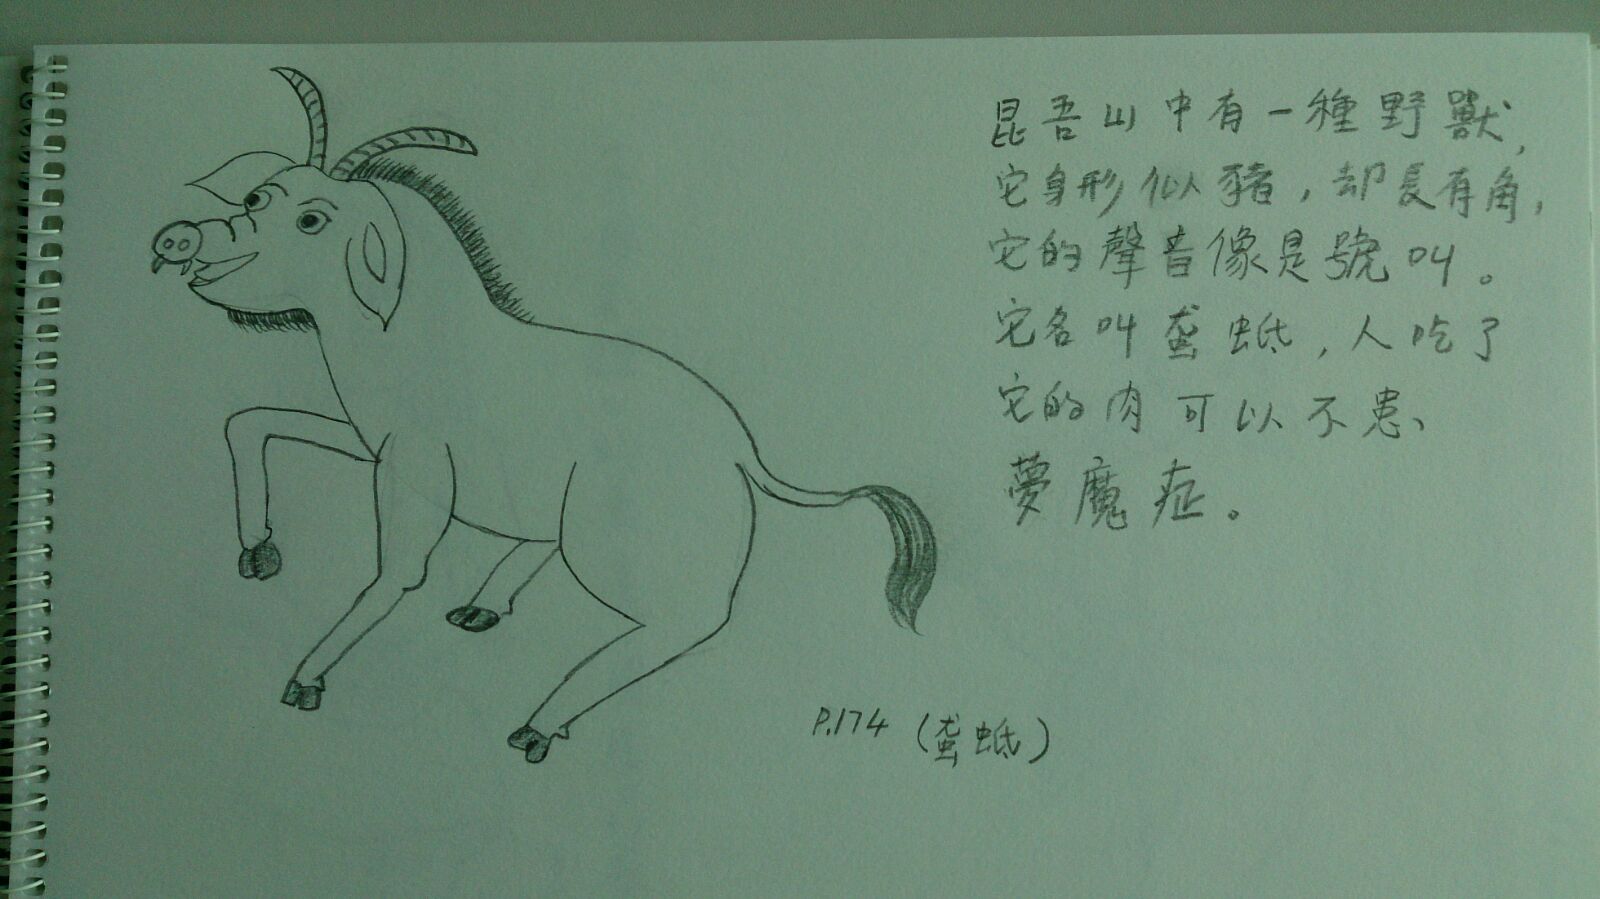 昆吾山中有一種野獸，
它身形似豬，却長有角，
它的聲音像是號叫。
它名叫蠪蚳，人吃了
它的肉可以不患、
夢魔症。
P.174（蠪蚳）